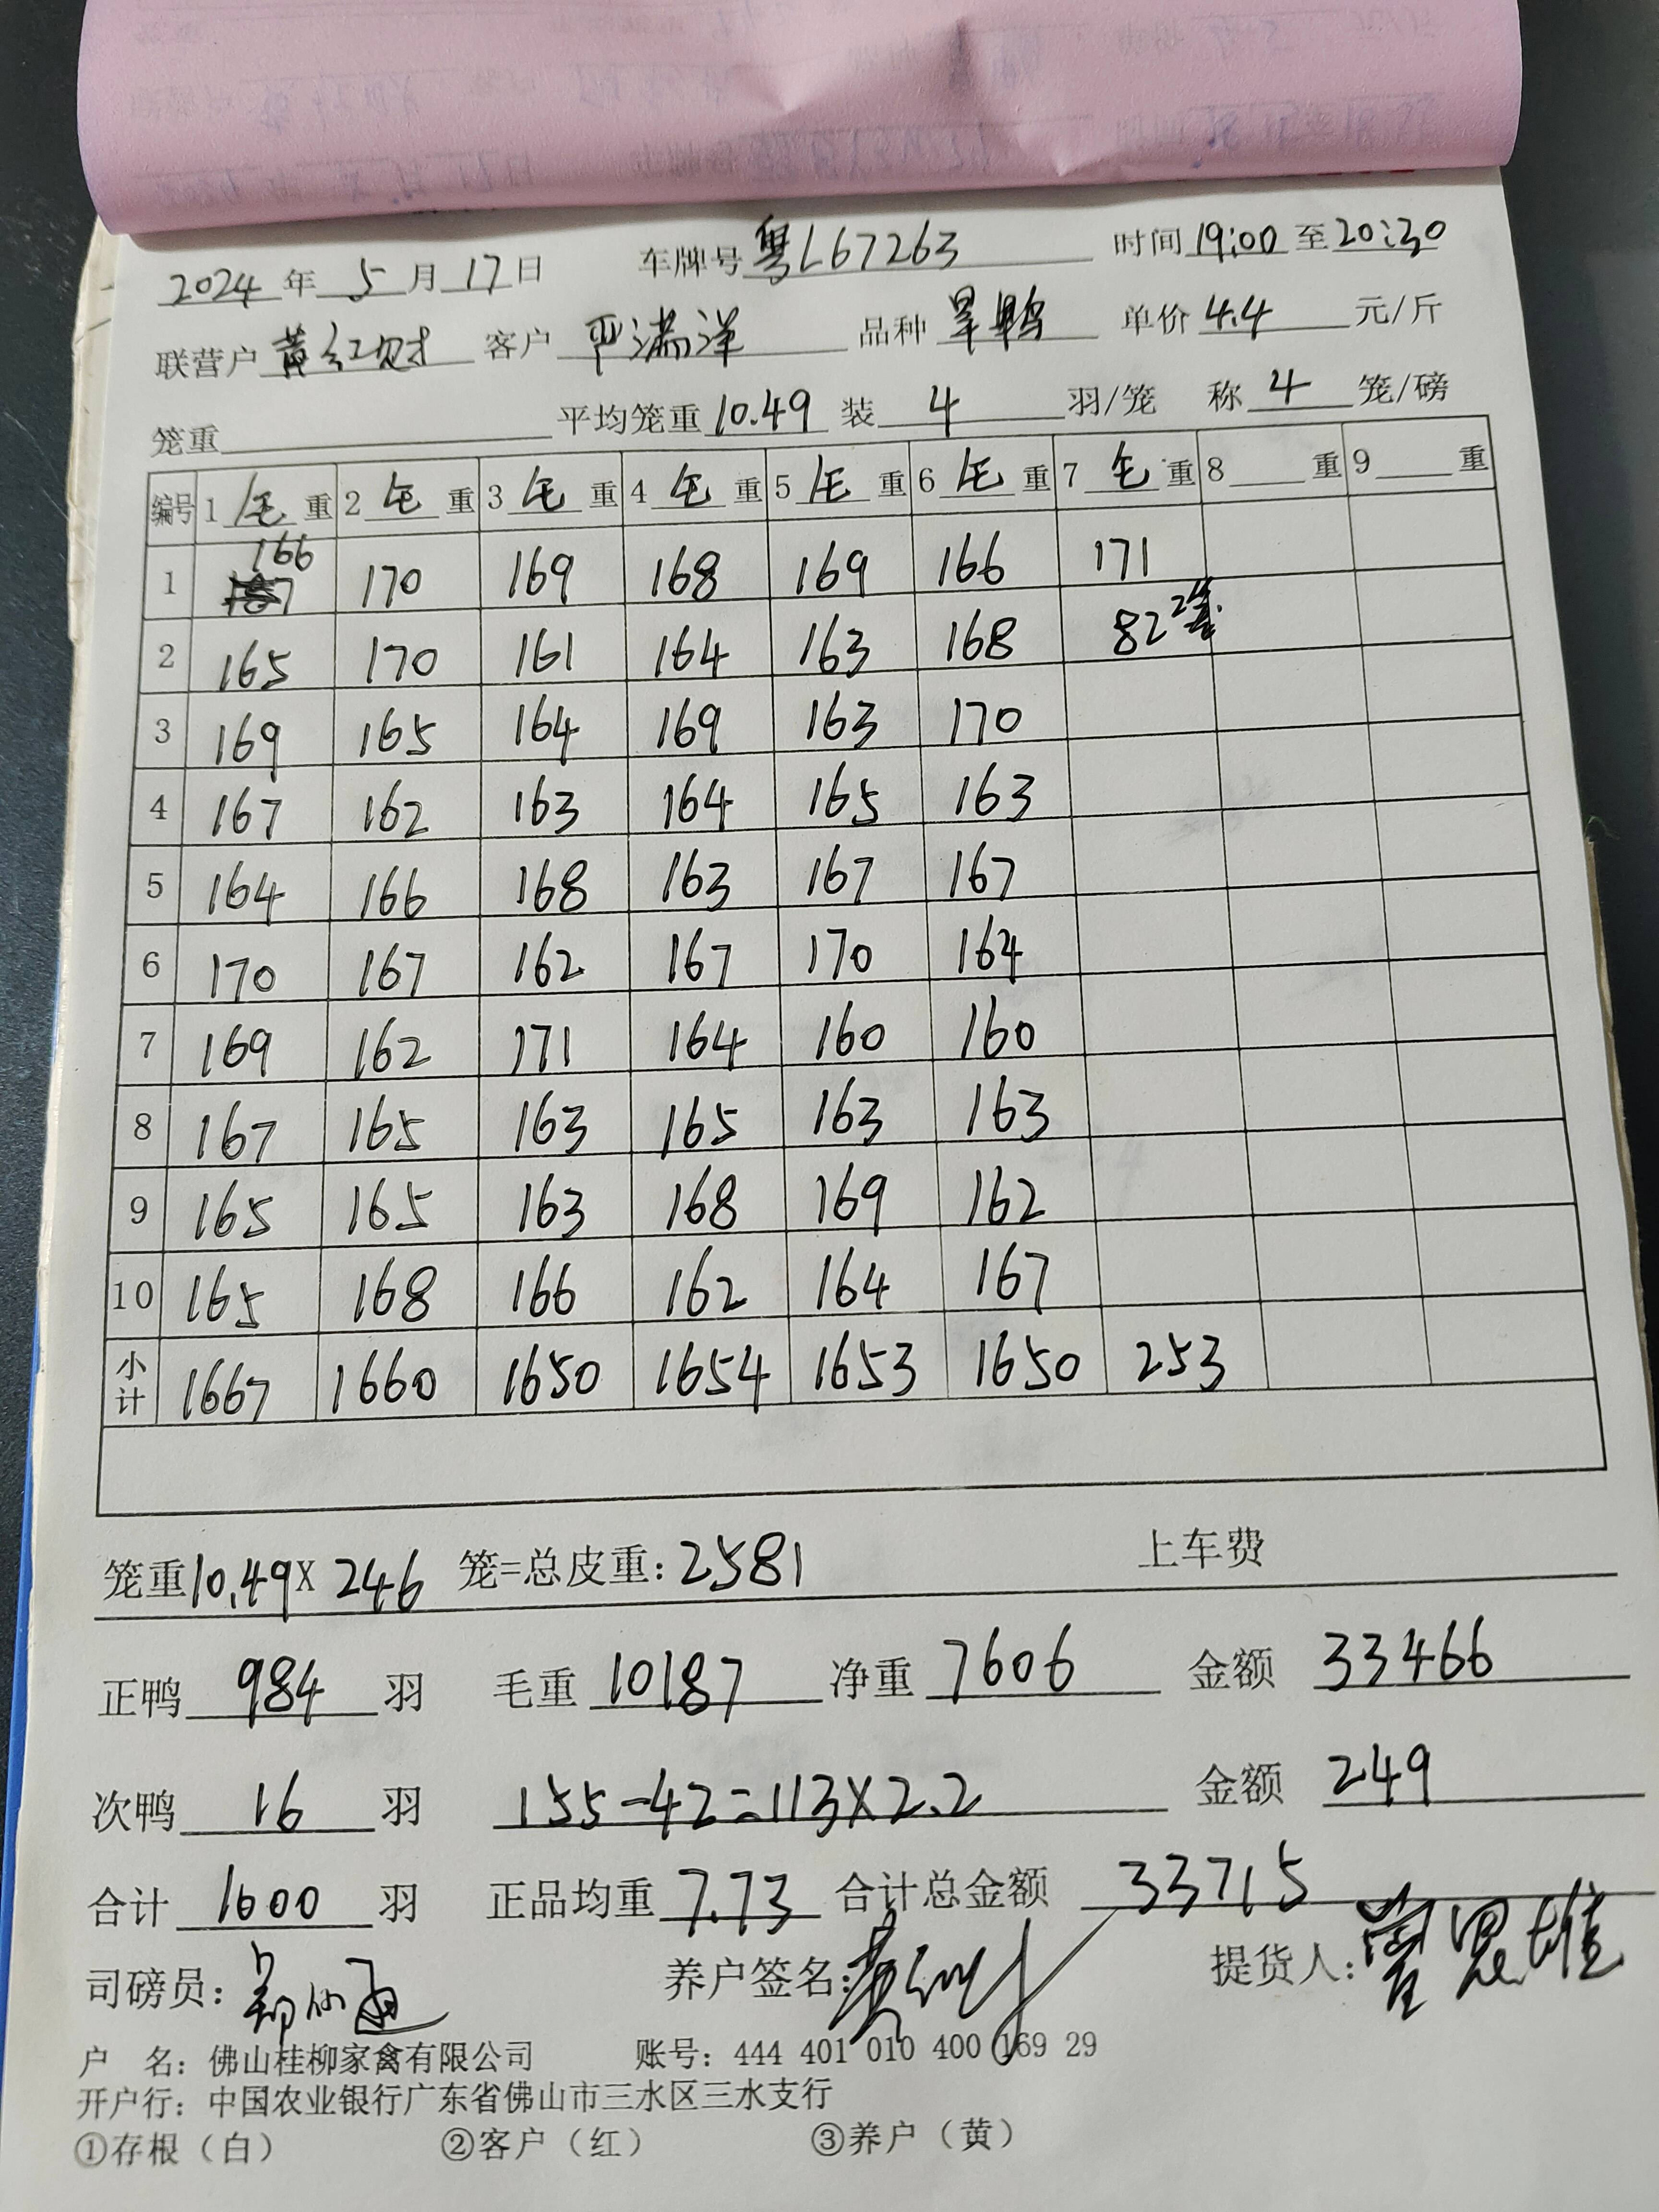 2024年5月17日 车牌号粤L67263 时间19:00至20:30
联营户黄红财 客户严满洋 品种旱鸭 单价4.4元/斤
笼重 平均笼重10.49 装4羽/笼 称4笼/磅
编号 1毛重 2毛重 3毛重 4毛重 5毛重 6毛重 7毛重 8重 9重
1 166 170 169 168 169 166 171
2 165 170 161 164 163 168 82 2笼
3 169 165 164 169 163 170
4 167 162 163 164 165 163
5 164 166 168 163 167 167
6 170 167 162 167 170 164
7 169 162 171 164 160 160
8 167 165 163 165 163 163
9 165 165 163 168 169 162
10 165 168 166 162 164 167
小计 1667 1660 1650 1654 1653 1650 253
笼重10.49X246笼=总皮重：2581 上车费
正鸭984羽 毛重10187 净重7606 金额33466
次鸭16羽 155-42=113X2.2 金额249
合计1000羽 正品均重7.73 合计总金额33715
司磅员： 养户签名：黄红财 提货人：思雄
户 名：佛山桂柳家禽有限公司 账号：444 401 010 400 169 29
开户行：中国农业银行广东省佛山市三水区三水支行
①存根（白） ②客户（红） ③养户（黄）